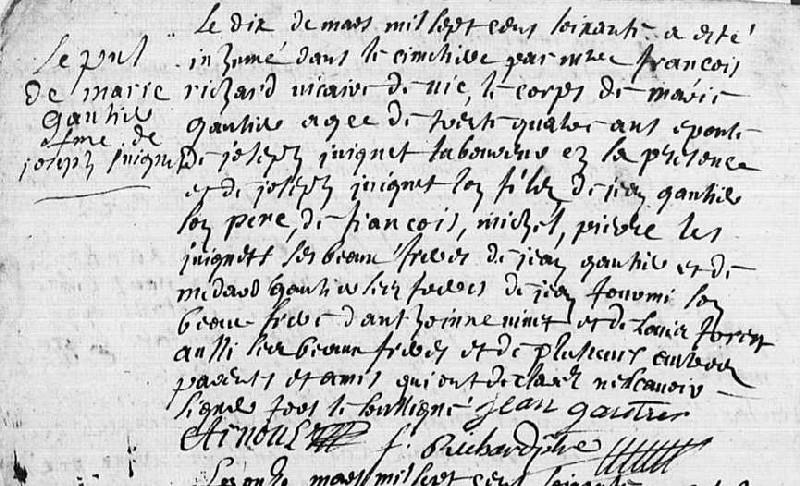 Le dix de mars mil sept cens soixante a esté
inhumé dans le cimetiere par mtre françois
richard vicaire de vic, le corps de marie
gautier agee de trente quatre ans epouse
de joseph juignet laboureur en la presence
et de joseph juignet son fils, de jean gautier
son pere, de françois, michel, pierre les
juignets ses beaux freres de jean gautier et de
medard gautier ses freres de jean son
beau frere d'anthoinne et de
aussi ses beaux freres et de plusieurs autres
parents et amis qui ont declaré ne scavoir
signer fors le soussigné jean gautier
f. Richard ptre
le onze mars mil sept cens soixante
Sepul
de marie
Gautier
fme de
joseph juignet